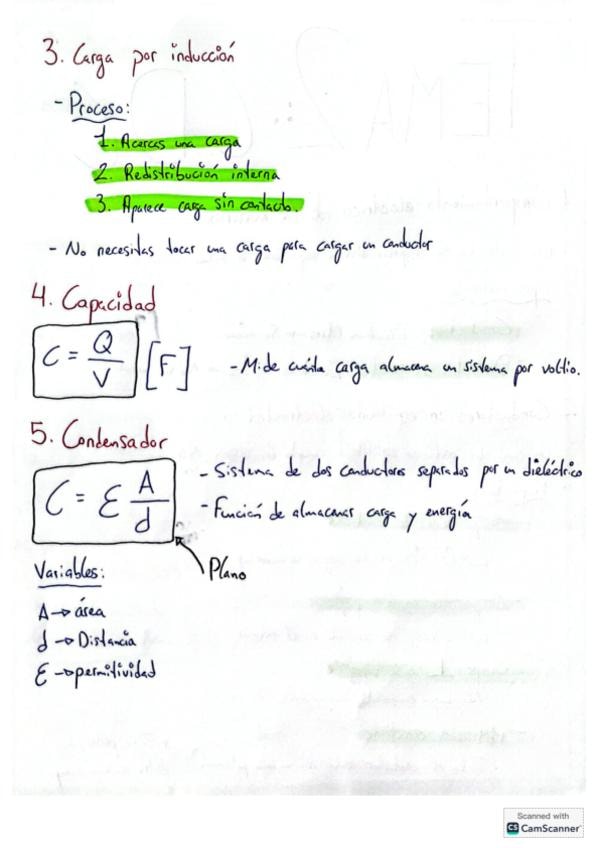 3. Carga por inducción
- Proceso:
1. Acercas una carga
2. Redistribución interna
3. Aparece carga sin contacto.
- No necesitas tocar una carga para cargar un conductor
4. Capacidad
C = Q/V [F]
- Mide cuánta carga almacena un sistema por voltio.
5. Condensador
C = ε A/d
- Sistema de dos conductores separados por un dieléctrico
- Función de almacenar carga y energía
Plano
Variables:
A → área
d → Distancia
ε → permitividad
Scanned with
CS CamScanner